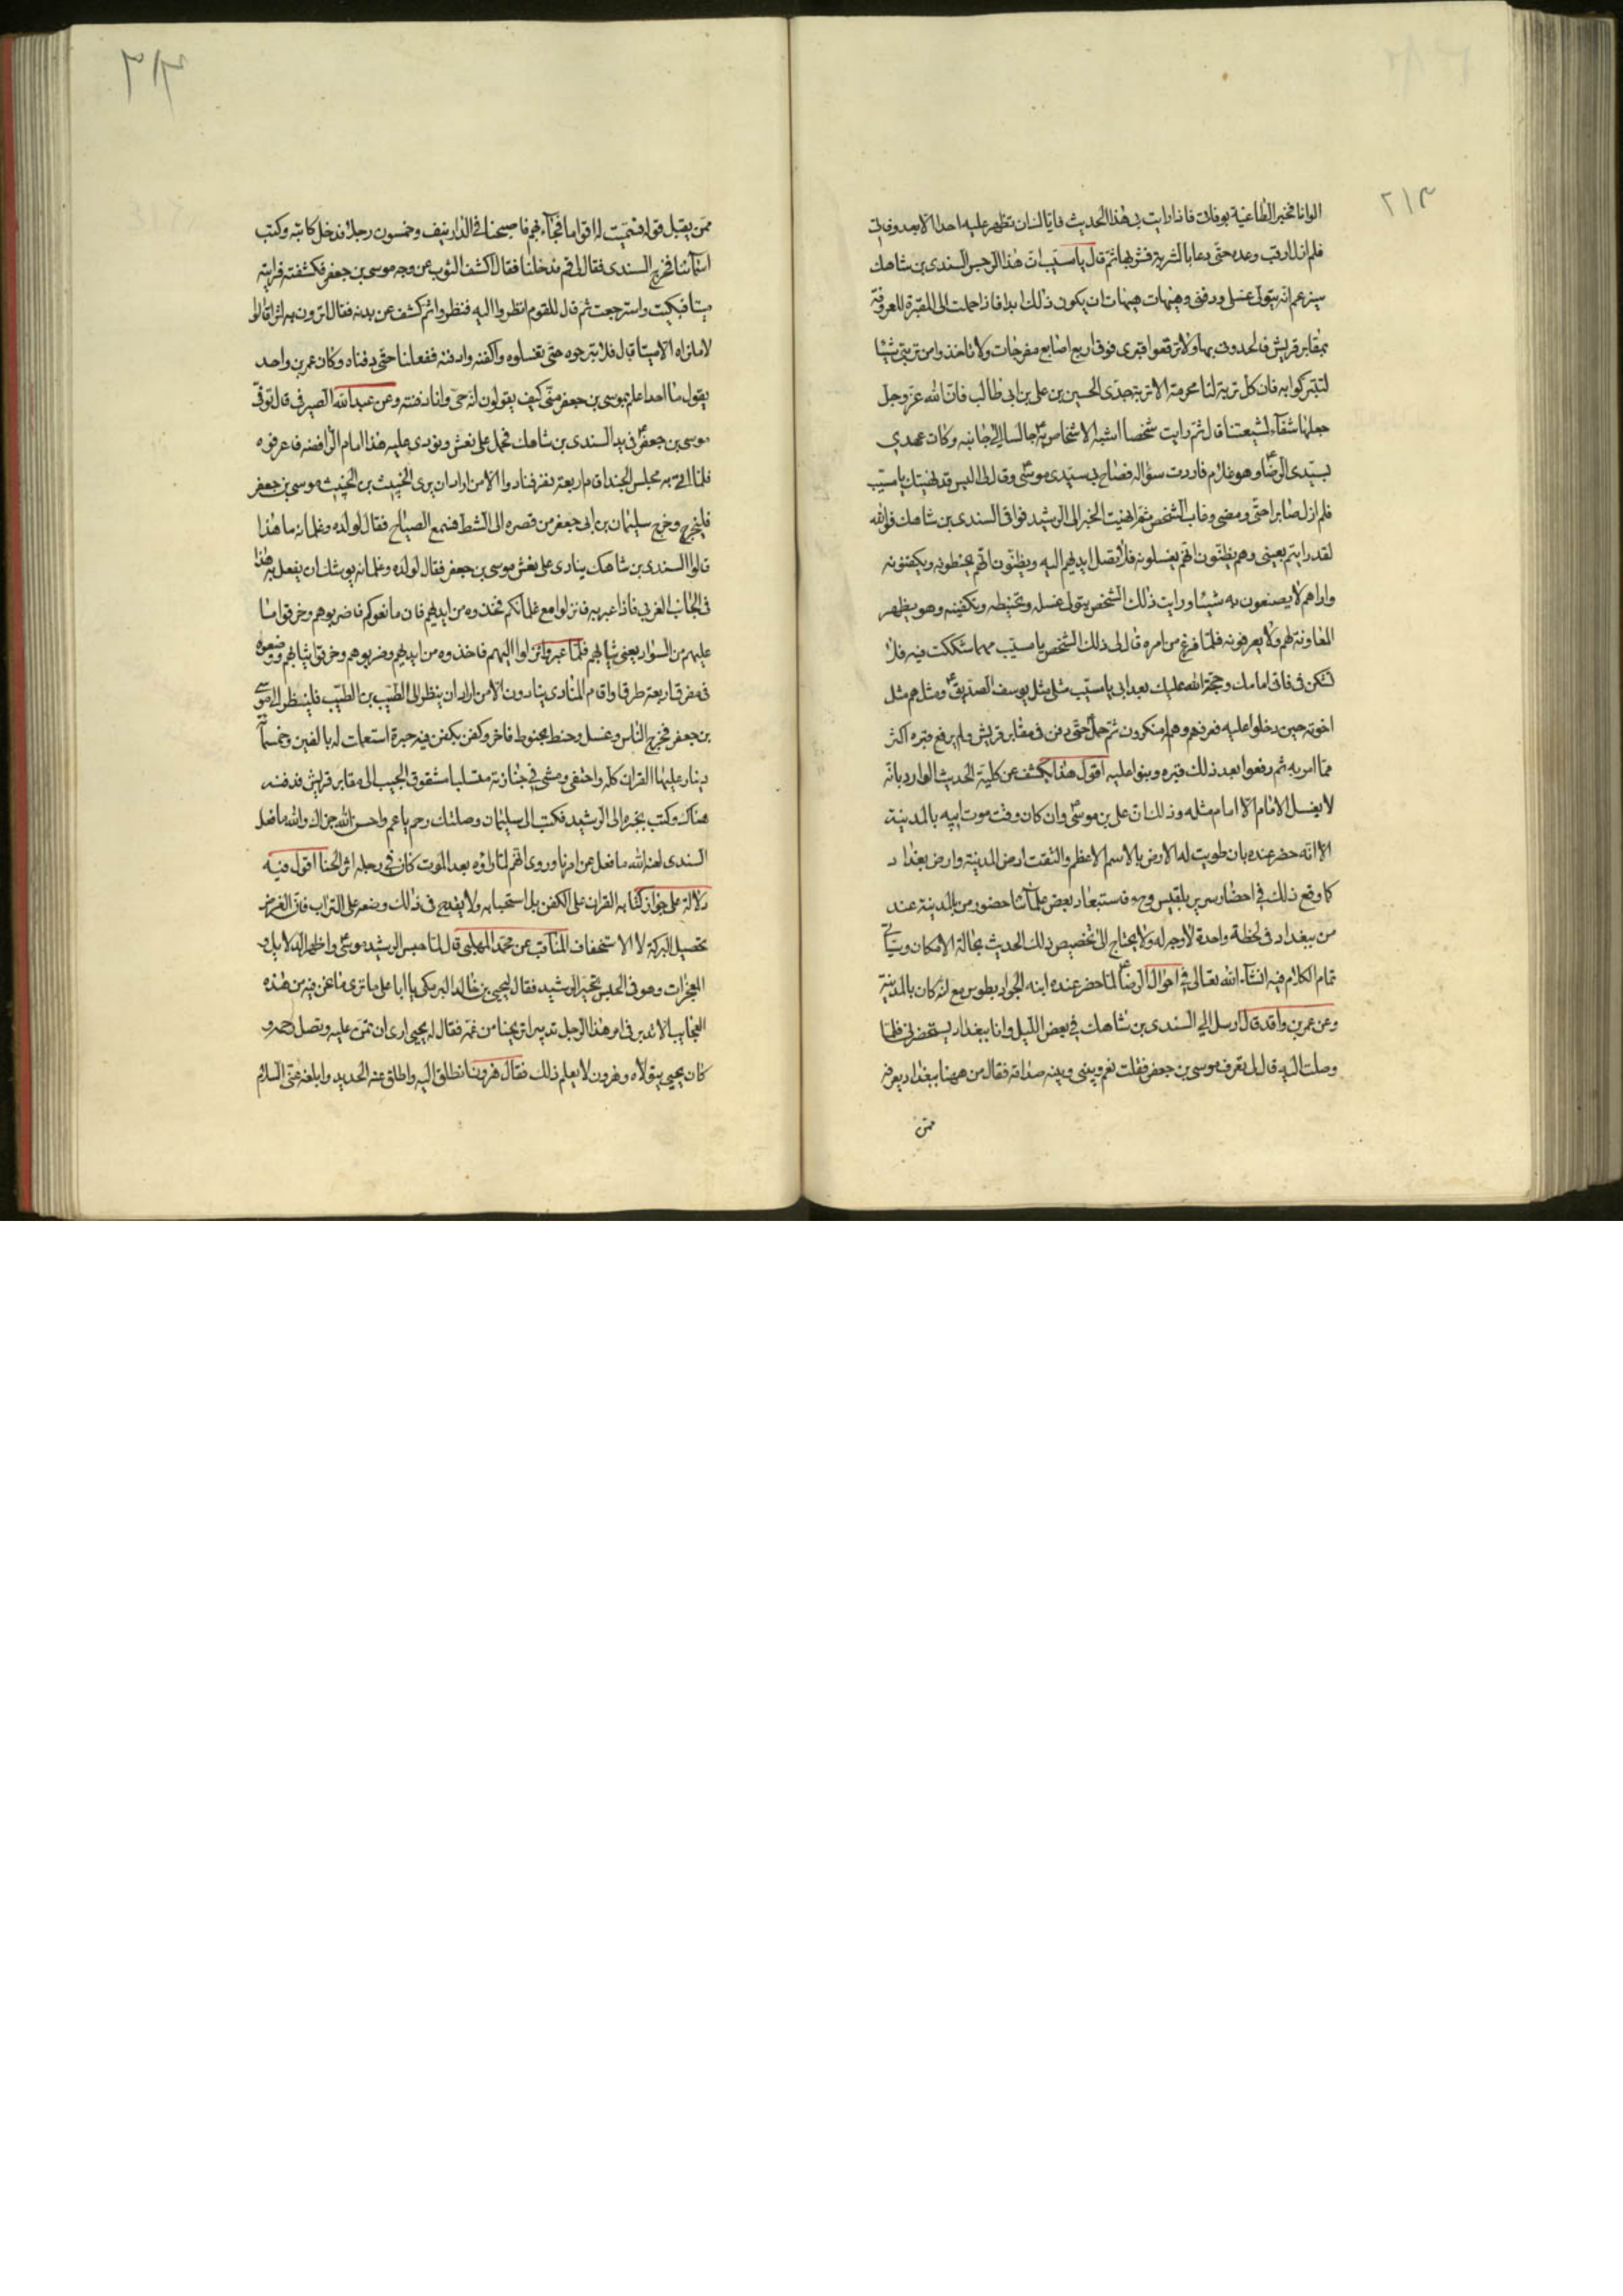 ٢١٣
الوانا فخبر الطاغية بوفاتى فاذا رايت بى هذا الحديث فاياك ان تظهر عليه احدا الا بعد وفاتى
فلم ازل ارقب وعده حتى دعا بالشربة فشربها ثم قال يا مسيب ان هذا الرجس السندى بن شاهك
سيزعم انه يتولى غسلى ودفنى وهيهات هيهات ان يكون ذلك ابدا فاذا حملت الى المقبرة المعروفة
بمقابر قريش فالحدونى بها ولا ترفعوا قبرى فوق اربع اصابع مفرجات ولا تاخذوا من تربتى شيئا
لتتبركوا به فان كل تربة لنا محرمة الا تربة جدى الحسين بن على بن ابى طالب فان الله عز وجل
جعلها شفاء لشيعتنا قال ثم رايت شخصا اشبه الاشخاص به جالسا الى جانبه وكان عهدى
بسيدى الرضا وهو غلام فاردت سؤاله فصاح بى سيدى موسى وقال لى اليس قد نهيتك يا مسيب
فلم ازل صابرا حتى ومضى وغاب الشخص ثم انهيت الخبر الى الرشيد فوافى السندى بن شاهك فوالله
لقد رايتهم بعينى وهم يظنون انهم يغسلونه فلا تصل ايديهم اليه ويظنون انهم يحنطونه ويكفنونه
واراهم لا يصنعون به شيئا ورايت ذلك الشخص يتولى غسله وتحنيطه وتكفينه وهو يظهر
المعاونة لهم ولا يعرفونه فلما فرغ من امره قال لى ذلك الشخص يا مسيب مهما شككت فيه فلا
تشكن فى فانى امامك وحجة الله عليك بعد ابى يا مسيب مثلى مثل يوسف الصديق ومثلهم مثل
اخوته حين دخلوا عليه فعرفهم وهم له منكرون ثم حمل حتى دفن فى مقابر قريش ولم يرفع قبره اكثر
مما امر به ثم رفعوا بعد ذلك قبره وبنوا عليه اقول هذا يكشف عن كلية الحديث الوارد بانه
لا يغسل الامام الا امام مثله وذلك ان على بن موسى وان كان وقت موت ابيه بالمدينة
الا انه حضر عنده بان طويت له الارض بالاسم الاعظم والتقت ارض المدينة وارض بغداد
كما وقع ذلك فى احضار سرير بلقيس وح فاستبعاد بعض علمائنا حضوره من المدينة عند
من ببغداد فى لحظة واحدة لا وجه له ولا يحتاج الى تخصيص ذلك الحديث بحالة الامكان وسيأتى
تمام الكلام فيه انشاء الله تعالى فى احوال الرضا لما حضر عنده ابنه الجواد بطوس مع انه كان بالمدينة
وعن عمر بن واقد قال ارسل الى السندى بن شاهك فى بعض الليل وانا ببغداد يستحضرنى فلما
وصلت اليه قال لى تعرف موسى بن جعفر فقلت نعم وبينى وبينه صداقة فقال من ههنا ببغداد يعرفه
ممن
٣١٣
ممن يقبل قوله فسميت له اقواما فجاء بهم فاصبحنا فى الدار نيف وخمسون رجلا فدخل كاتبه وكتب
اسمائنا فخرج السندى فقال لى قم فدخلنا فقال اكشف الثوب عن وجه موسى بن جعفر فكشفته فرايته
ميتا فبكيت واسترجعت ثم قال للقوم انظروا اليه فنظروا ثم كشف عن بدنه فقال ترون به اثرا قالوا
لا ما نراه الا ميتا قال فلا تبرحوه حتى تغسلوه واكفنه وادفنه ففعلنا حتى دفناه وكان عمر بن واحد
يقول ما احد اعلم بموسى بن جعفر منى كيف يقولون انه حى وانا دفنته وعن عبد الله الصيرفى قال توفى
موسى بن جعفر فى يد السندى بن شاهك فحمل على نعش ونودى عليه هذا امام الرافضة فاعرفوه
فلما اتى به مجلس الجند اقام اربعة نفر فنادوا الا من اراد ان يرى الخبيث بن الخبيث موسى بن جعفر
فليخرج وخرج سليمان بن ابى جعفر من قصره الى الشط فسمع الصياح فقال لولده وغلمانه ما هذا
قالوا السندى بن شاهك ينادى على نعش موسى بن جعفر فقال لولده وغلمانه يوشك ان يفعل به هذا
فى الجانب الغربى فاذا عبر به فانزلوا مع غلمانكم فخذوه من ايديهم فان مانعوكم فاضربوهم وخرقوا ما
عليهم من السواد يعنى ثيابهم فلما عبروا نزلوا اليهم فاخذوه من ايديهم وضربوهم وخرقوا ثيابهم ووضعوه
فى مفرق اربعة طرق واقام المنادى ينادون الا من اراد ان ينظر الى الطيب بن الطيب فلينظر الى موسى
بن جعفر فخرج الناس وغسل وحنط بحنوط فاخر وكفن بكفن فيه حبرة استعملت له بالفين وخمسمائة
دينار عليها القران كله واحتفى ومشى فى جنازته متسلبا مشقوق الجيب الى مقابر قريش فدفنه
هناك وكتب بخبره الى الرشيد فكتب الى سليمان وصلتك رحم يا عم واحسن الله جزاك والله ما فعل
السندى لعنه الله ما فعل عن امرنا وروى انهم لما راوه بعد الموت كان فى رجله اثر الحنا اقول فيه
دلالة على جواز كتابة القران على الكفن بل استحبابه ولا يقدح فى ذلك وضعه على التراب فان الغرض
تحصيل البركة لا الاستخفاف المناقب عن محمد المهلبى قال لما حبس الرشيد موسى واظهر الدلايل و
المعجزات وهو فى الحبس تحير الرشيد فقال ليحيى بن خالد البرمكى يا ابا على ما ترى ما نحن فيه من هذه
العجايب الا تدبر فى امر هذا الرجل تدبيرا تريحنا من غمه فقال له يحيى ارى ان تمن عليه وتصل رحمه و
كان يحيى يتولاه وهرون لا يعلم ذلك فقال هرون انطلق اليه واطلق عنه الحديد وابلغه عنى السلام